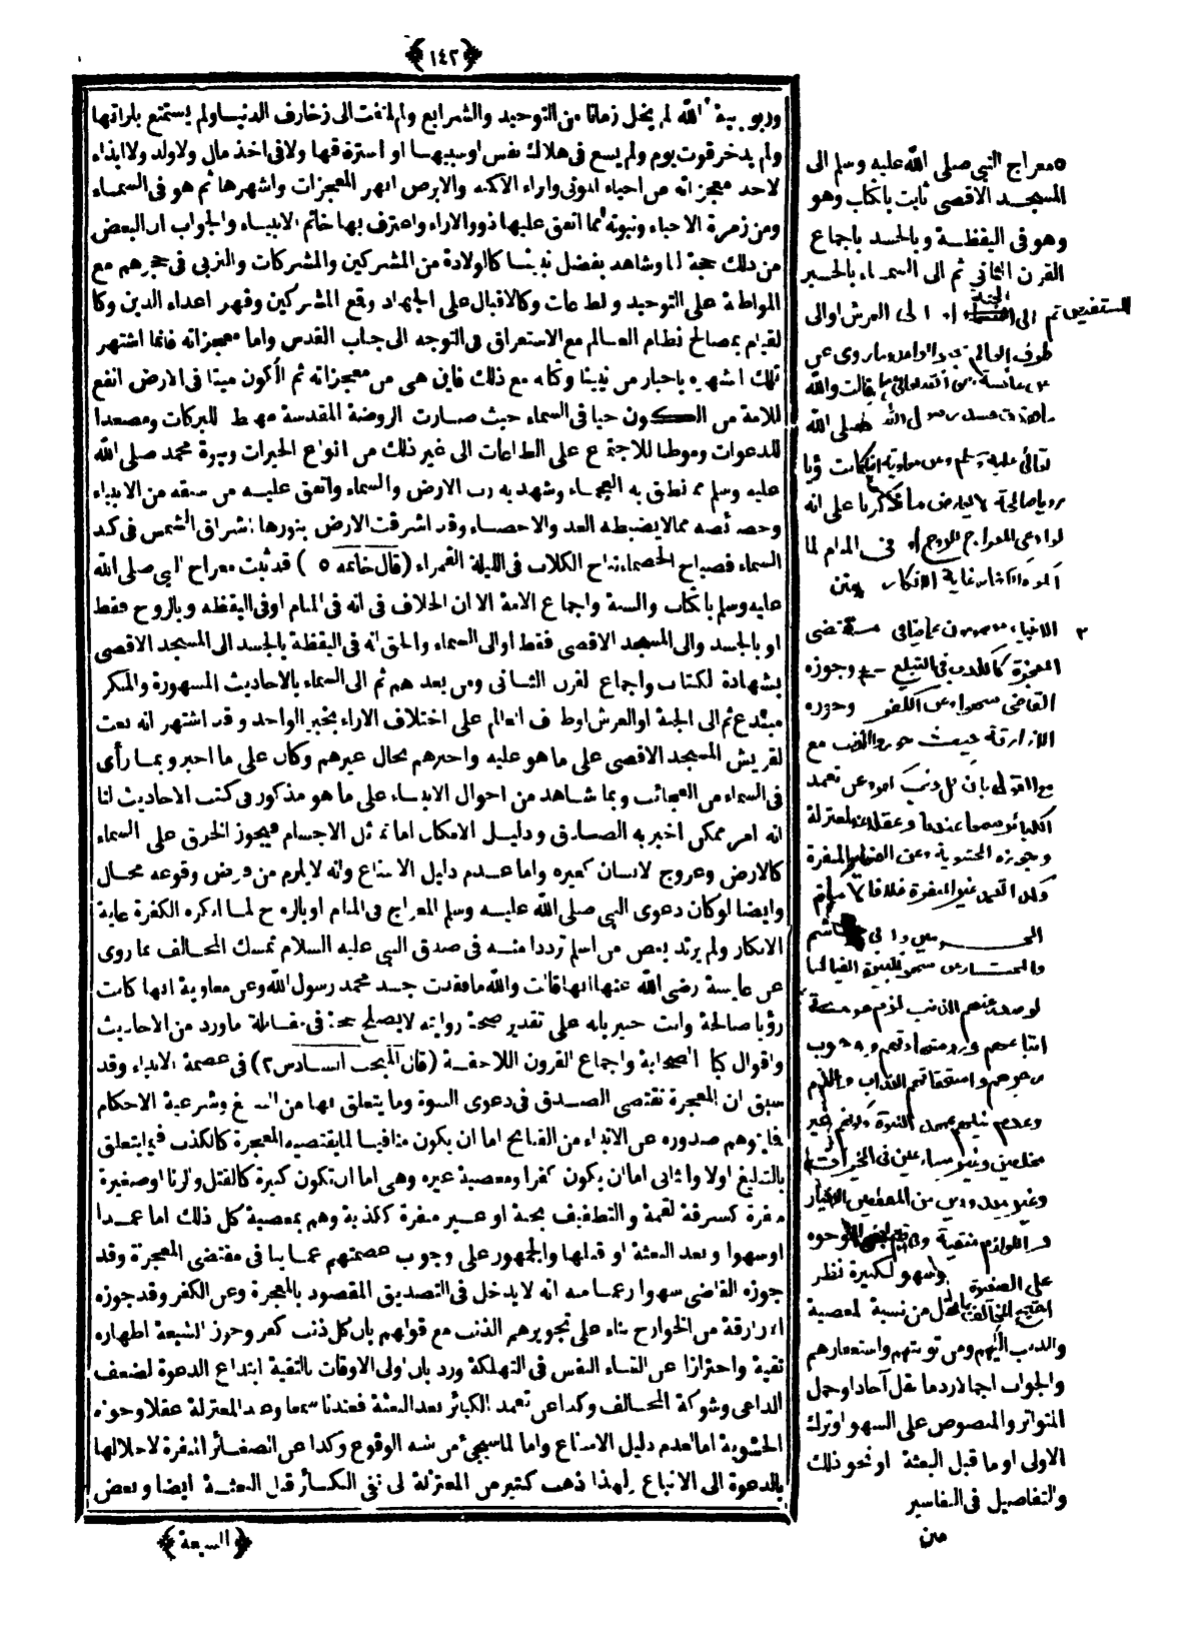 ﴿١٤٢﴾
وربوبية الله لم يخل زمانا من التوحيد والشرايع ولم يلتفت الى زخارف الدنيا ولم يستمتع بلذاتها
ولم يدخر قوت يوم ولم يسع فى هلاك نفس او سبيها او استرقاقها ولا فى اخذ مال ولا ولد ولا ايذاء
لاحد معجزاته من احياء الموتى وابراء الاكمه والابرص ابهر المعجزات واشهرها ثم هو فى السماء
ومن زمرة الاحياء ونبوته مما اتفق عليها ذووا الاراء واعترف بها خاتم الانبياء والجواب ان البعض
من ذلك حجة لنا وشاهد بفضل نبينا كالولادة من المشركين والمشركات والتربى فى حجرهم مع
المواظبة على التوحيد والطاعات وكالاقبال على الجهاد وقمع المشركين وقهر اعداء الدين وكا
لقيام بمصالح نظام العالم مع الاستغراق فى التوجه الى جناب القدس واما معجزاته فانما اشتهر
تلك الشهرة باخبار من نبينا وكتابه مع ذلك فاين هى من معجزاته ثم الكون ميتا فى الارض انفع
للامة من الكون حيا فى السماء حيث صارت الروضة المقدسة مهبط للبركات ومصعدا
للدعوات وموطنا للاجتماع على الطاعات الى غير ذلك من انواع الخيرات ونبوة محمد صلى الله
عليه وسلم مما نطق به العجماء وشهد به رب الارض والسماء واتفق عليه من سبقه من الانبياء
وخصائصه مما لا يضبطه العد والاحصاء وقد اشرقت الارض بنورها اشراق الشمس فى كبد
السماء فصياح الخصماء نباح الكلاب فى الليلة القمراء (قال خاتمه ٥ ) قد ثبت معراج النبى صلى الله
عليه وسلم بالكتاب والسنة واجماع الامة الا ان الخلاف فى انه فى المنام او فى اليقظه وبالروح فقط
او بالجسد والى المسجد الاقصى فقط او الى السماء والحق انه فى اليقظة بالجسد الى المسجد الاقصى
بشهادة الكتاب واجماع القرن الثانى ومن بعدهم ثم الى السماء بالاحاديث المشهورة والمنكر
مبتدع ثم الى الجنة او العرش او طرف العالم على اختلاف الاراء بخبر الواحد وقد اشتهر انه نعت
لقريش المسجد الاقصى على ما هو عليه واخبرهم بحال عيرهم وكان على ما اخبر وبما رأى
فى السماء من العجائب وبما شاهد من احوال الانبياء على ما هو مذكور فى كتب الاحاديث لنا
انه امر ممكن اخبر به الصادق ودليل الامكان اما تماثل الاجسام فيجوز الخرق على السماء
كالارض وعروج الانسان كغيره واما عدم دليل الامتناع وانه لا يلزم من فرض وقوعه محال
وايضا لو كان دعوى النبى صلى الله عليه وسلم المعراج فى المنام او بالروح لما انكره الكفرة غاية
الانكار ولم يرتد بعض من اسلم ترددا منه فى صدق النبى عليه السلام تمسك المخالف بما روى
عن عايشة رضى الله عنها انها قالت والله ما فقدت جسد محمد رسول الله وعن معاوية انها كانت
رؤيا صالحة وانت خبير بانه على تقدير صحة روايته لا يصلح حجة فى مقابلة ماورد من الاحاديث
واقوال كبار الصحابة واجماع القرون اللاحقة (قال المبحث السادس ٢) فى عصمة الانبياء وقد
سبق ان المعجزة تقتضى الصدق فى دعوى النبوة وما يتعلق بها من التبليغ وشرعية الاحكام
فما يتوهم صدوره عن الانبياء من القبايح اما ان يكون منافيا لما يقتضيه المعجزة كالكذب فيما يتعلق
بالتبليغ اولا والثانى اما ان يكون كفرا ومعصية غيره وهى اما ان تكون كبيرة كالقتل والزنا او صغيرة
منفرة كسرقة لقمة والتطفيف بحبة او غير منفرة ككذبة وهم بمعصية كل ذلك اما عمدا
او سهوا وبعد البعثة او قبلها والجمهور على وجوب عصمتهم عما ينافى مقتضى المعجزة وقد
جوزه القاضى سهوا زعما منه انه لا يدخل فى التصديق المقصود بالمعجزة وعن الكفر وقد جوزه
الازارقة من الخوارج بناء على تجويزهم الذنب مع قولهم بان كل ذنب كفر وجوز الشيعة اظهاره
تقية واحترازا عن القاء النفس فى التهلكة ورد بان اولى الاوقات بالتقية ابتداء الدعوة لضعف
الداعى وشوكة المخالف وكذا عن تعمد الكبائر بعد البعثة فعندنا سمعا وعند المعتزلة عقلا وجوزه
الحشوية اما لعدم دليل الامتناع واما لما سيجئ من شبه الوقوع وكذا عن الصغائر المنفرة لاخلالها
بالدعوة الى الاتباع ولهذا ذهب كثير من المعتزلة الى نفى الكبائر قبل البعثة ايضا وبعض
﴿الشيعة﴾
٥ معراج النبى صلى الله عليه وسلم الى
المسجد الاقصى ثابت بالكتاب وهو
وهو فى اليقظة وبالجسد باجماع
القرن الثانى ثم الى السماء بالخبر
المستفيض ثم الى الجنة او الى العرش او الى
طرف العالم بخبر الواحد وما روى عن
عائشة رضى الله تعالى عنها قالت والله
ما فقدت جسد رسول الله صلى الله
تعالى عليه وسلم وعن معاوية انها كانت رؤيا
رؤيا صالحة لا يعارض ما ذكرنا على انه
لو ادعى المعراج للروح او فى المنام لما
انكره الكفار غاية الانكار متن
٢ الانبياء معصومون عما ينافى مقتضى
المعجزة كالكذب فى التبليغ وجوزه
القاضى سهوا وعن الكفر وجوزه
الازارقة حيث جوزوا الذنب مع
مع القول بان كل ذنب كفر وعن تعمد
الكبائر سمعا عندنا وعقلا عند المعتزلة
وجوزه الحشوية وعن الصغاير المنفرة
وكذا تعمد غير المنفرة خلافا لامام
الحرمين وابى هاشم
لو صدر عنهم الذنب لزم حرمة
اتباعهم ورد شهادتهم ووجوب
زجرهم واستحقاقهم العذاب واللوم
وعدم نيلهم عهد النبوة وكونهم غير
مخلصين وغير مسارعين فى الخيرات
وغير معدودين من المصطفين الاخيار
واللوازم منتفية وفى بعض الوجوه
على الصغيرة والسهو الكبيرة نظر
احتج المخالف بما نقل من نسبة المعصية
والذنب اليهم ومن توبتهم واستغفارهم
والجواب اجمالا رد ما نقل آحادا وحمل
المتواتر والمنصوص على السهو او ترك
الاولى او ما قبل البعثة او نحو ذلك
والتفاصيل فى التفاسير
متن